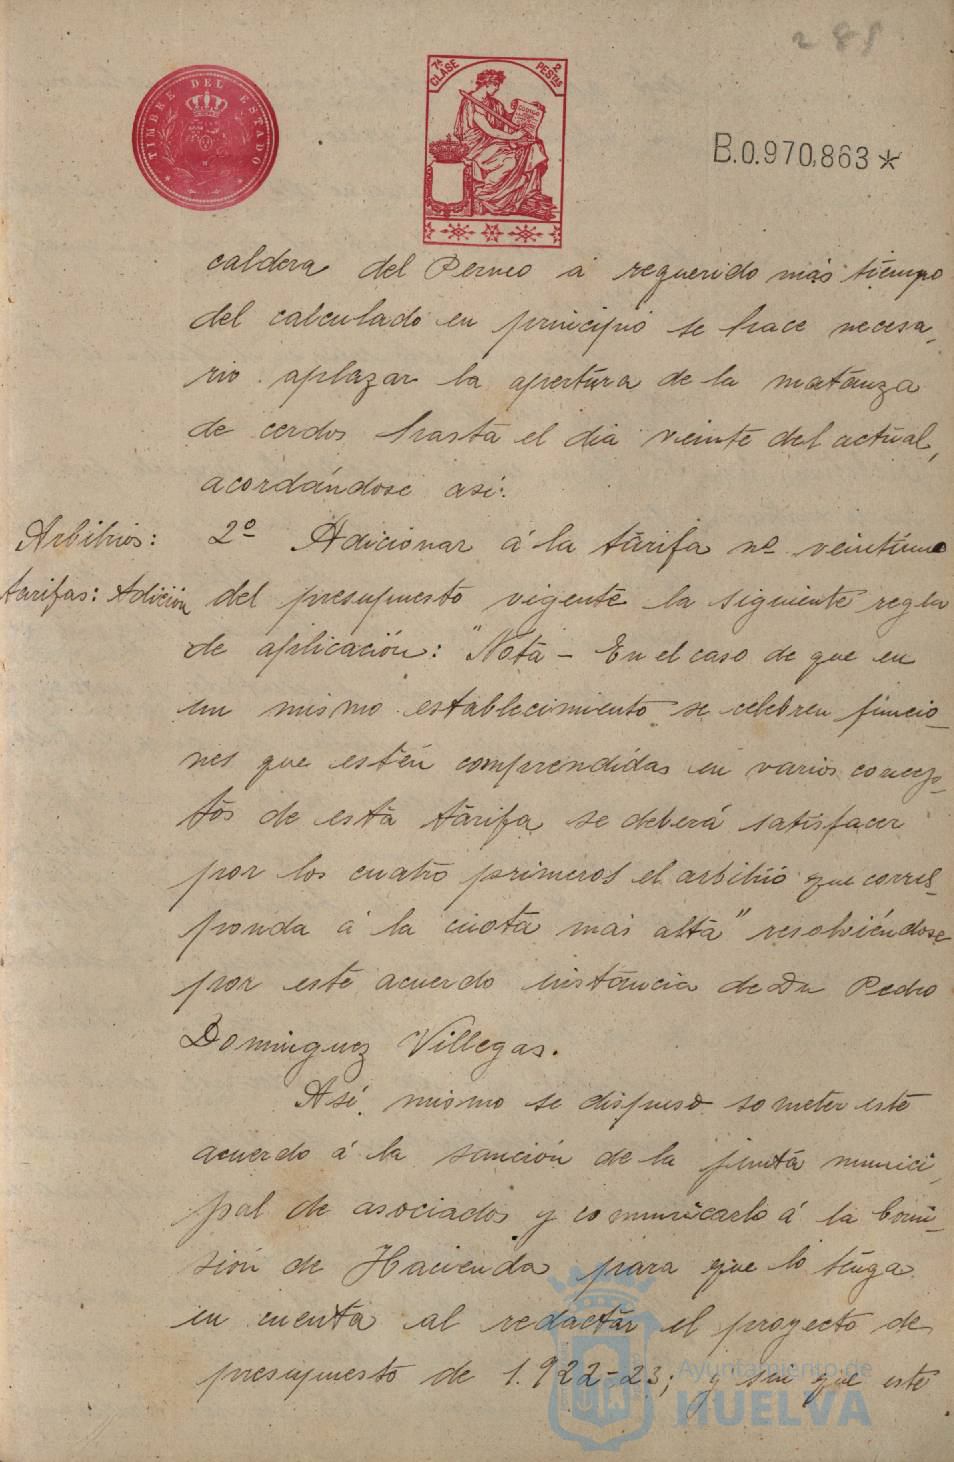 285
TIMBRE DEL ESTADO
7ª CLASE
2 PESTAS
B.0.970,863*
caldera del Perneo á requerido más tiempo
del calculado en principio se hace necesa-
rio aplazar la apertura de la matanza
de cerdos hasta el dia veinte del actual,
acordándose asi:
Arbitrios:
tarifas: Adición
2º Adicionar á la tarifa nº veintiuno
del presupuesto vigente la siguiente regla
de aplicación: "Nota - En el caso de que en
un mismo establecimiento se celebren funcio-
nes que estén comprendidas en varios concep-
tos de esta tarifa se deberá satisfacer
por los cuatro primeros el arbitrio que corres-
ponda á la cuota más alta" resolviéndose
por este acuerdo instancia de Dn Pedro
Dominguez Villegas.
Asi mismo se dispuso someter este
acuerdo á la sanción de la junta munici-
pal de asociados y comunicarlo á la Comi-
sión de Hacienda para que lo tenga
en cuenta al redactar el proyecto de
presupuesto de 1.922-23; y sin que este
Ayuntamiento de
HUELVA